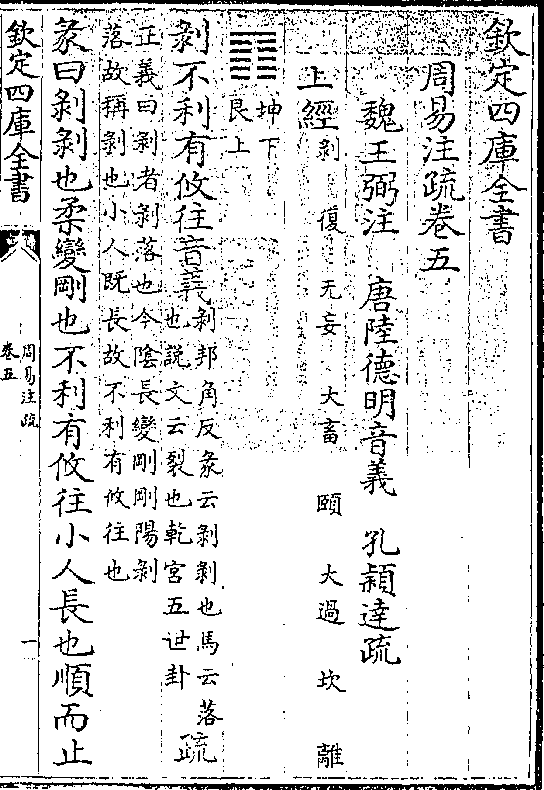 欽定四庫全書
周易注疏卷五
魏王弼注 唐陸德明音義 孔穎達疏
上經 剝 復 无妄 大畜 頤 大過 坎 離
䷖ 坤下
艮上
剝不利有攸往音義 剝邦角反彖云剝剝也馬云落
也說文云裂也乾宮五世卦 疏
正義曰剝者剝落也今陰長變剛剛陽剝
落故稱剝也小人既長故不利有攸往也
彖曰剝剝也柔變剛也不利有攸往小人長也順而止
欽定四庫全書
周易注疏
卷五
一